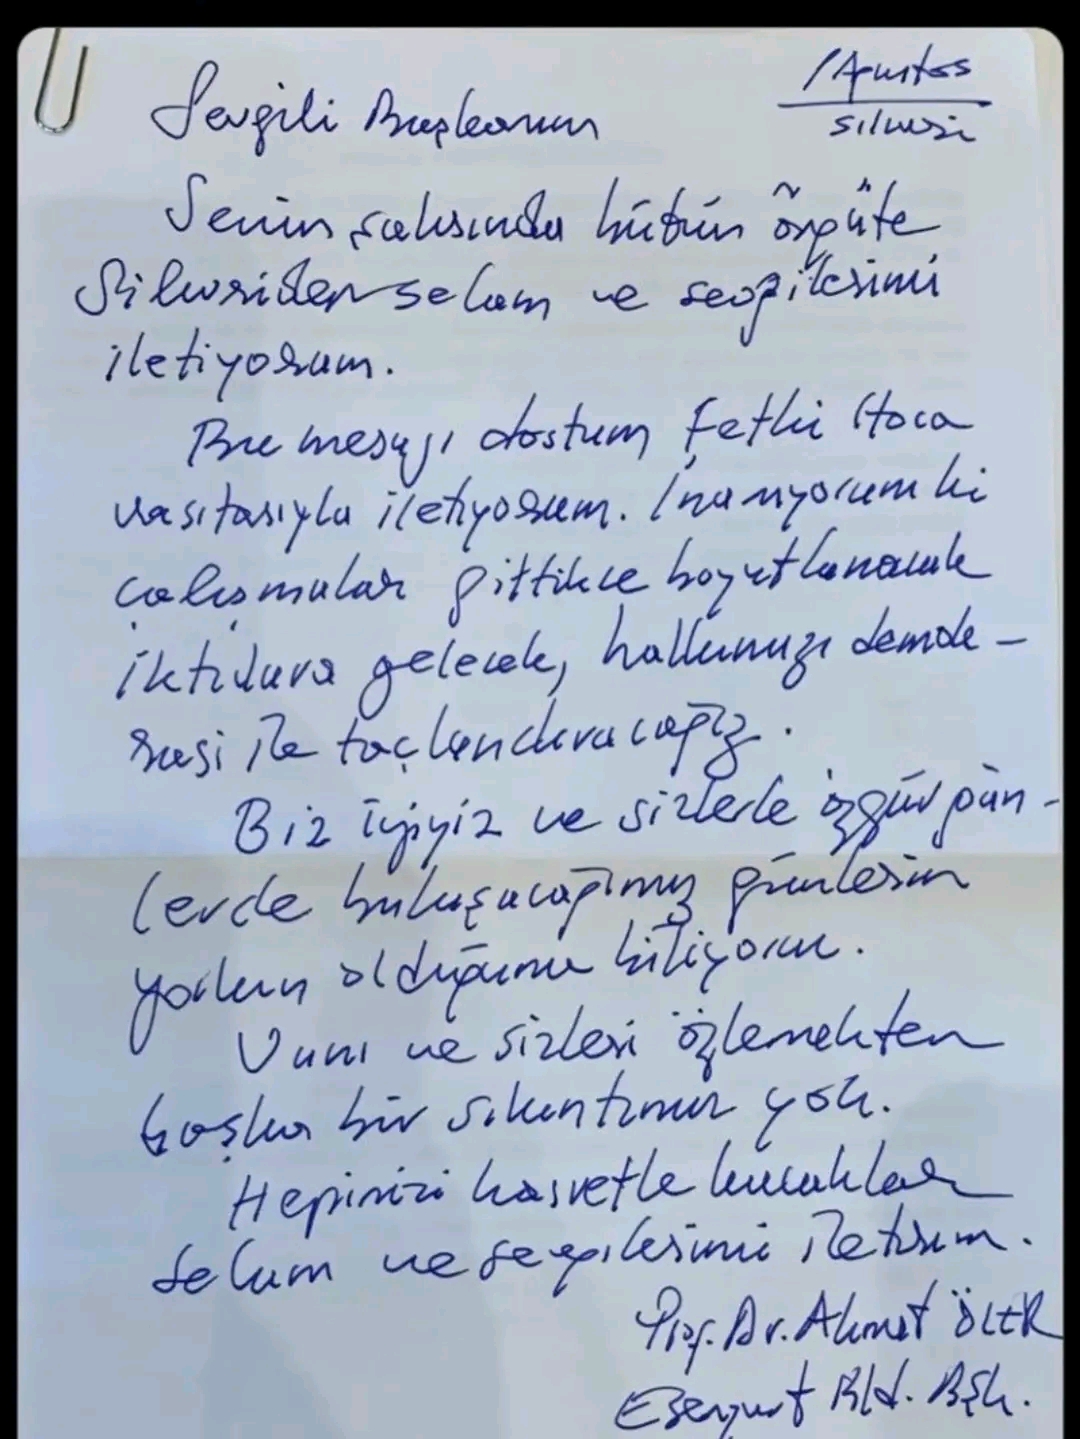 /Ağustos
Silivri
Sevgili Başkanım
Senin şahsında bütün örgüte
Silivriden selam ve sevgilerimi
iletiyorum.
Bu mesajı dostum Fethi Hoca
vasıtasıyla iletiyorum. İnanıyorum ki
çalışmalar gittikce boyutlanacak
iktidara gelecek, halkımızı demok-
rasi ile taçlandıracağız.
Biz iyiyiz ve sizlerle özgür gün-
lerde buluşacağımız günlerin
yakın olduğunu biliyoruz.
ve sizleri özlemekten
başka bir sıkıntımız yok.
Hepinizi hasretle kucaklar
selam ve sevgilerimi iletirim.
Prof. Dr. Ahmet ÖZER
Esenyurt Bld. Bşk.